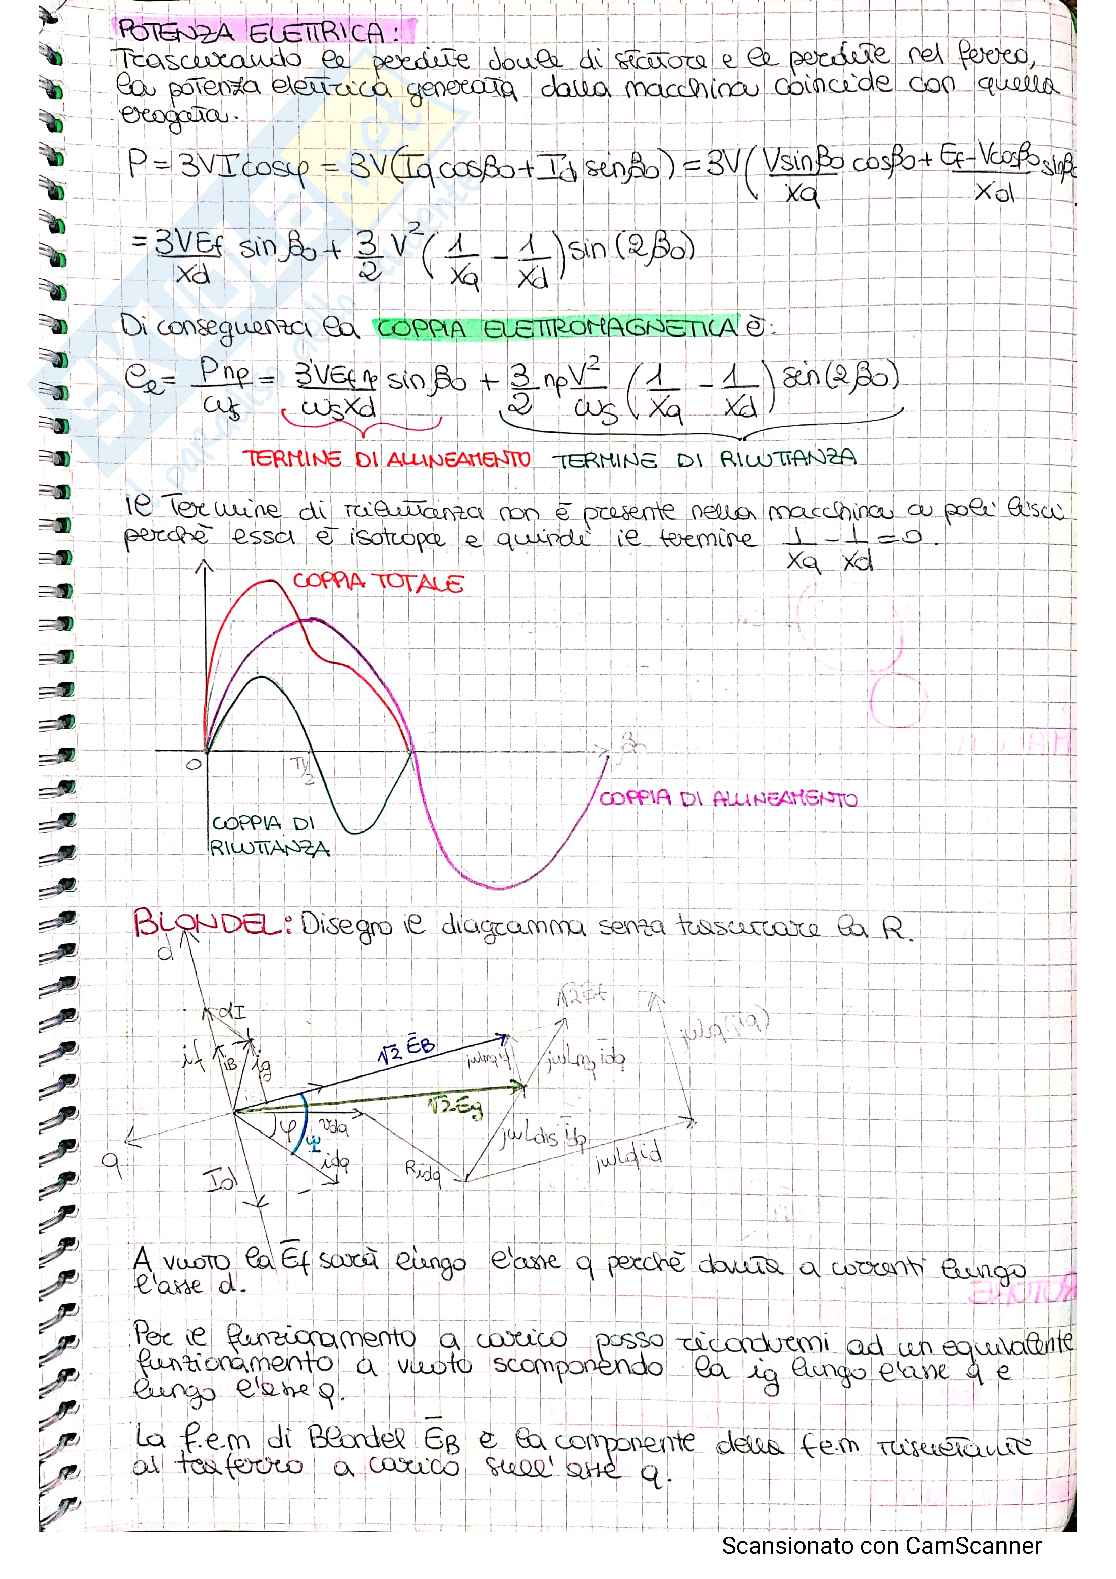 POTENZA ELETTRICA:
Trascurando le perdite Joule di statore e le perdite nel ferro,
la potenza elettrica generata dalla macchina coincide con quella
erogata.
P = 3VIcosφ = 3V(Iq cosβ0 + Id sinβ0) = 3V(Vsinβ0/Xq cosβ0 + Ef-Vcosβ0/Xd sinβ0
= 3VEf/Xd sinβ0 + 3/2 V²(1/Xq - 1/Xd) sin(2β0)
Di conseguenza la COPPIA ELETTROMAGNETICA è:
Ce = Pnp/ωs = 3VEf np/ωsXd sinβ0 + 3/2 np V²/ωs (1/Xq - 1/Xd) sin(2β0)
TERMINE DI ALLINEAMENTO TERMINE DI RILUTTANZA
Il termine di riluttanza non è presente nella macchina a poli lisci
perchè essa è isotropa e quindi il termine 1/Xq - 1/Xd = 0.
COPPIA TOTALE
0
π/2
COPPIA DI ALLINEAMENTO
COPPIA DI
RILUTTANZA
BLONDEL: Disegno il diagramma senza trascurare la R.
d
αI
if
iB
ig
√2 ĒB
√2Ēf
√2Eg
φ
Ψ
idq
Ridq
jωLdid
q
Id
A vuoto la Ēf sarà lungo l'asse q perchè dovuta a correnti lungo
l'asse d.
Per il funzionamento a carico posso ricondurmi ad un equivalente
funzionamento a vuoto scomponendo la ig lungo l'asse q e
lungo l'asse q.
La f.e.m di Blondel ĒB è la componente della f.e.m risultante
al traferro a carico sull'asse q.
Scansionato con CamScanner